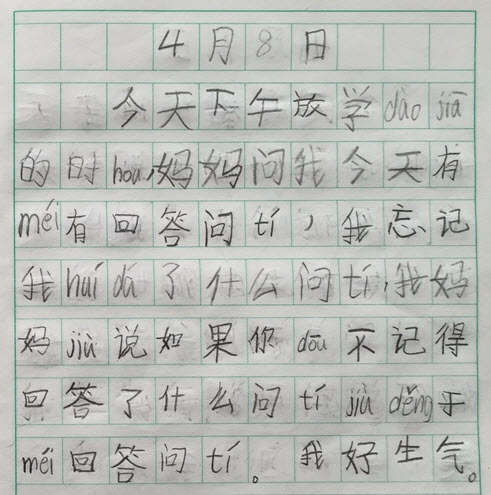 4月8日
今天下午放学dào jiā
的时hou,妈妈问我今天有
méi有回答问tí,我忘记
我huí dá了什么问tí,我妈
妈jiù说如果你dōu不记得
回答了什么问tí jiù děng于
méi回答问tí。我好生气。